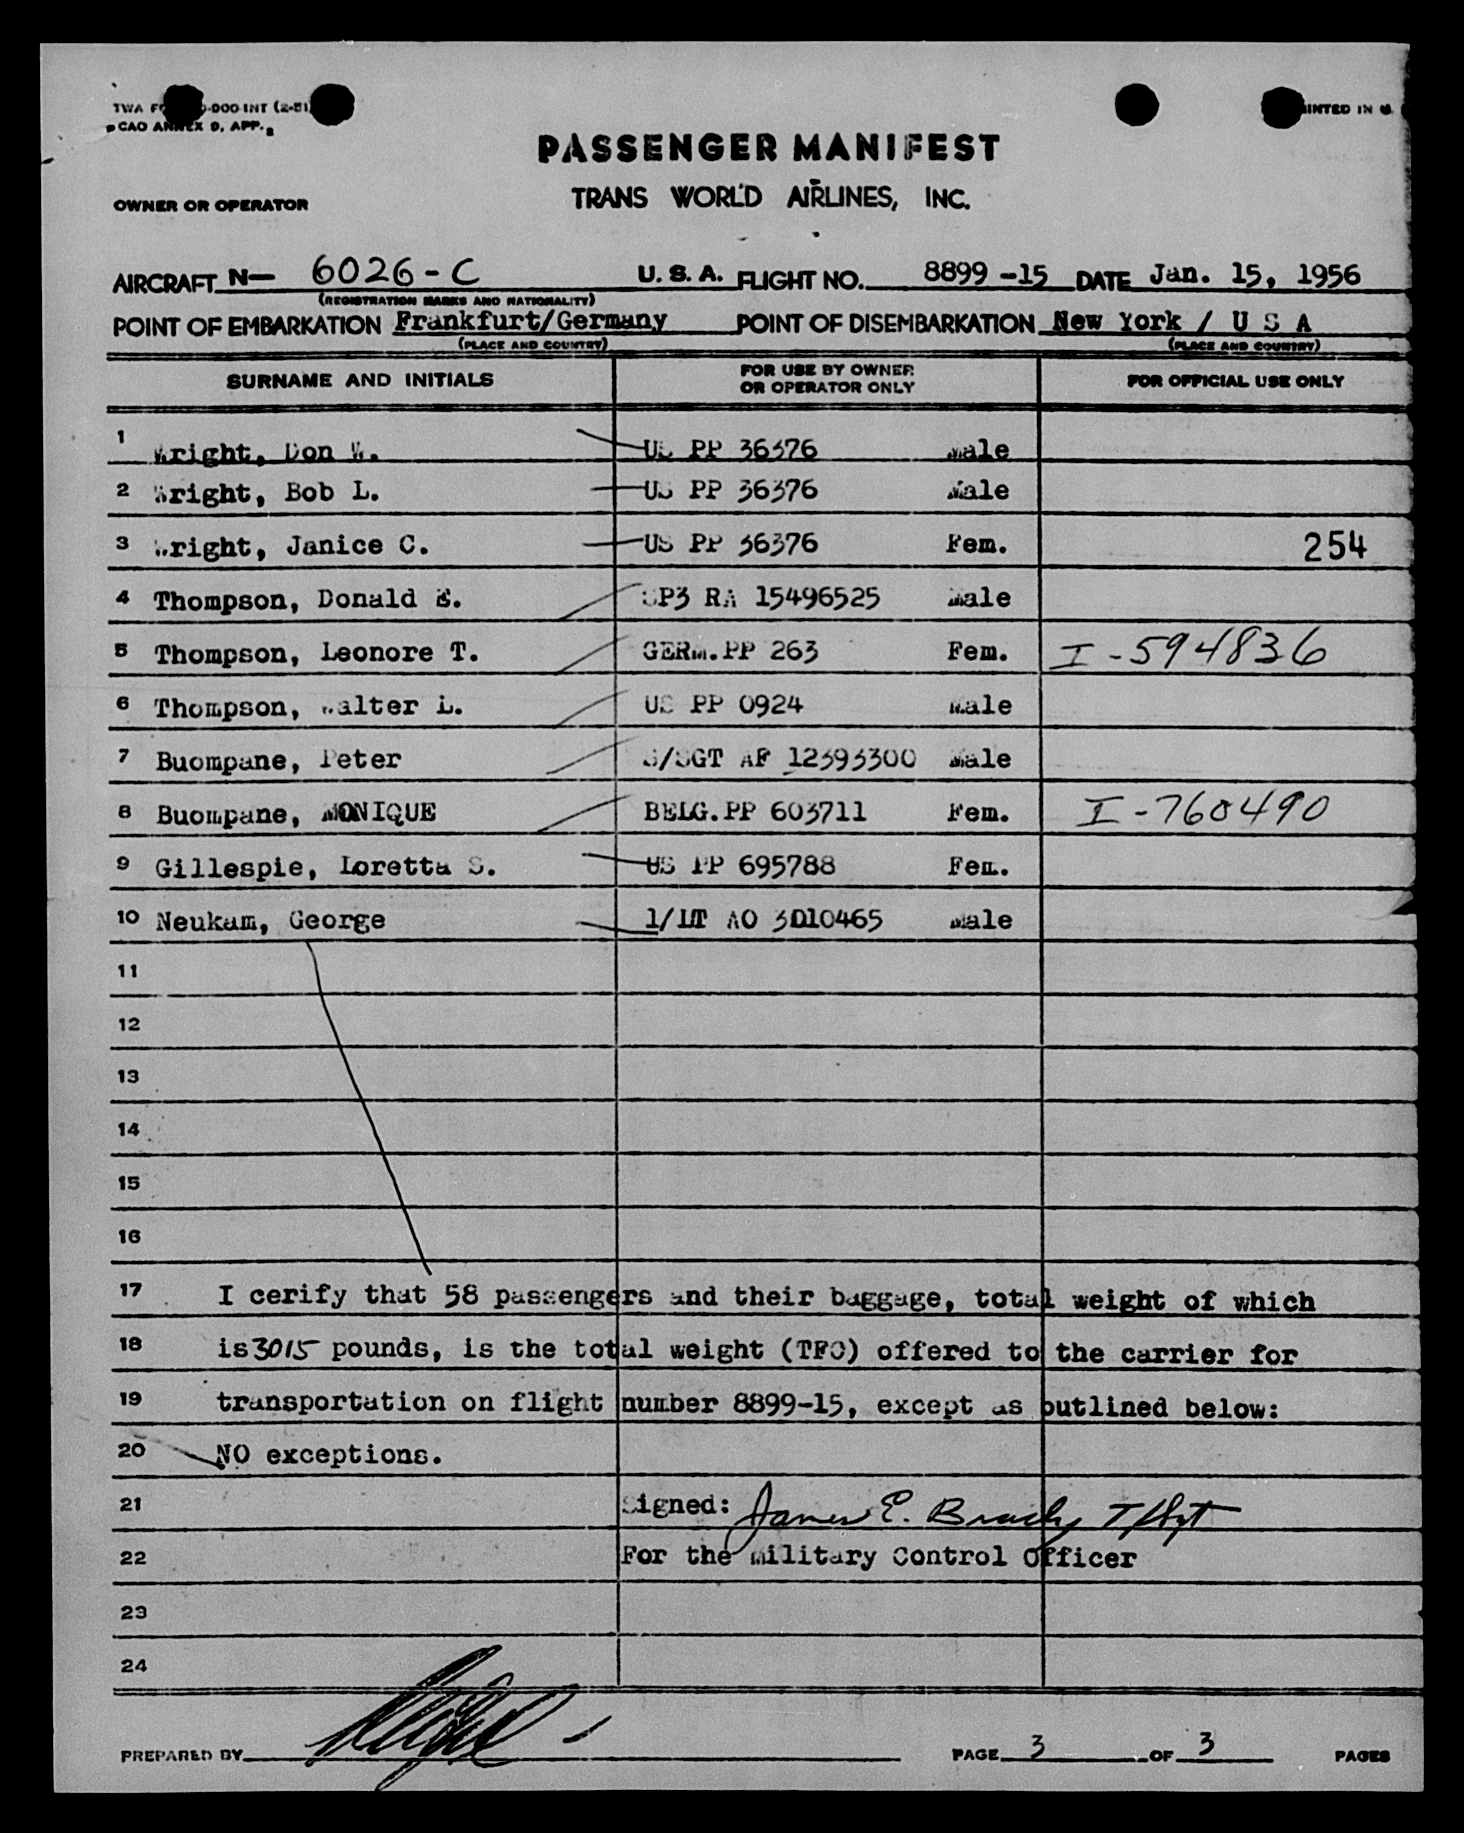 PASSENGER MANIFEST
TRANS WORLD AIRLINES, INC.
OWNER OR OPERATOR
AIRCRAFT N— 6026-C U. S. A. FLIGHT NO. 8899 -15 DATE Jan. 15, 1956
(REGISTRATION MARKS AND NATIONALITY)
POINT OF EMBARKATION Frankfurt/Germany POINT OF DISEMBARKATION New York / U S A
(PLACE AND COUNTRY) (PLACE AND COUNTRY)
SURNAME AND INITIALS FOR USE BY OWNER OR OPERATOR ONLY FOR OFFICIAL USE ONLY
1 Wright, Don W. US PP 36376 Male
2 Wright, Bob L. US PP 36376 Male
3 Wright, Janice C. US PP 36376 Fem. 254
4 Thompson, Donald E. SP3 RA 15496525 Male
5 Thompson, Leonore T. GERM.PP 263 Fem. I-594836
6 Thompson, Walter L. US PP 0924 Male
7 Buompane, Peter S/SGT AF 12393300 Male
8 Buompane, MONIQUE BELG.PP 603711 Fem. I-760490
9 Gillespie, Loretta S. US PP 695788 Fem.
10 Neukam, George 1/LT AO 3010465 Male
11
12
13
14
15
16
17 I cerify that 58 passengers and their baggage, total weight of which
18 is 3015 pounds, is the total weight (TFO) offered to the carrier for
19 transportation on flight number 8899-15, except as outlined below:
20 NO exceptions.
21 Signed: James E. Brady T/Sgt
22 For the Military Control Officer
23
24
PREPARED BY PAGE 3 OF 3 PAGES